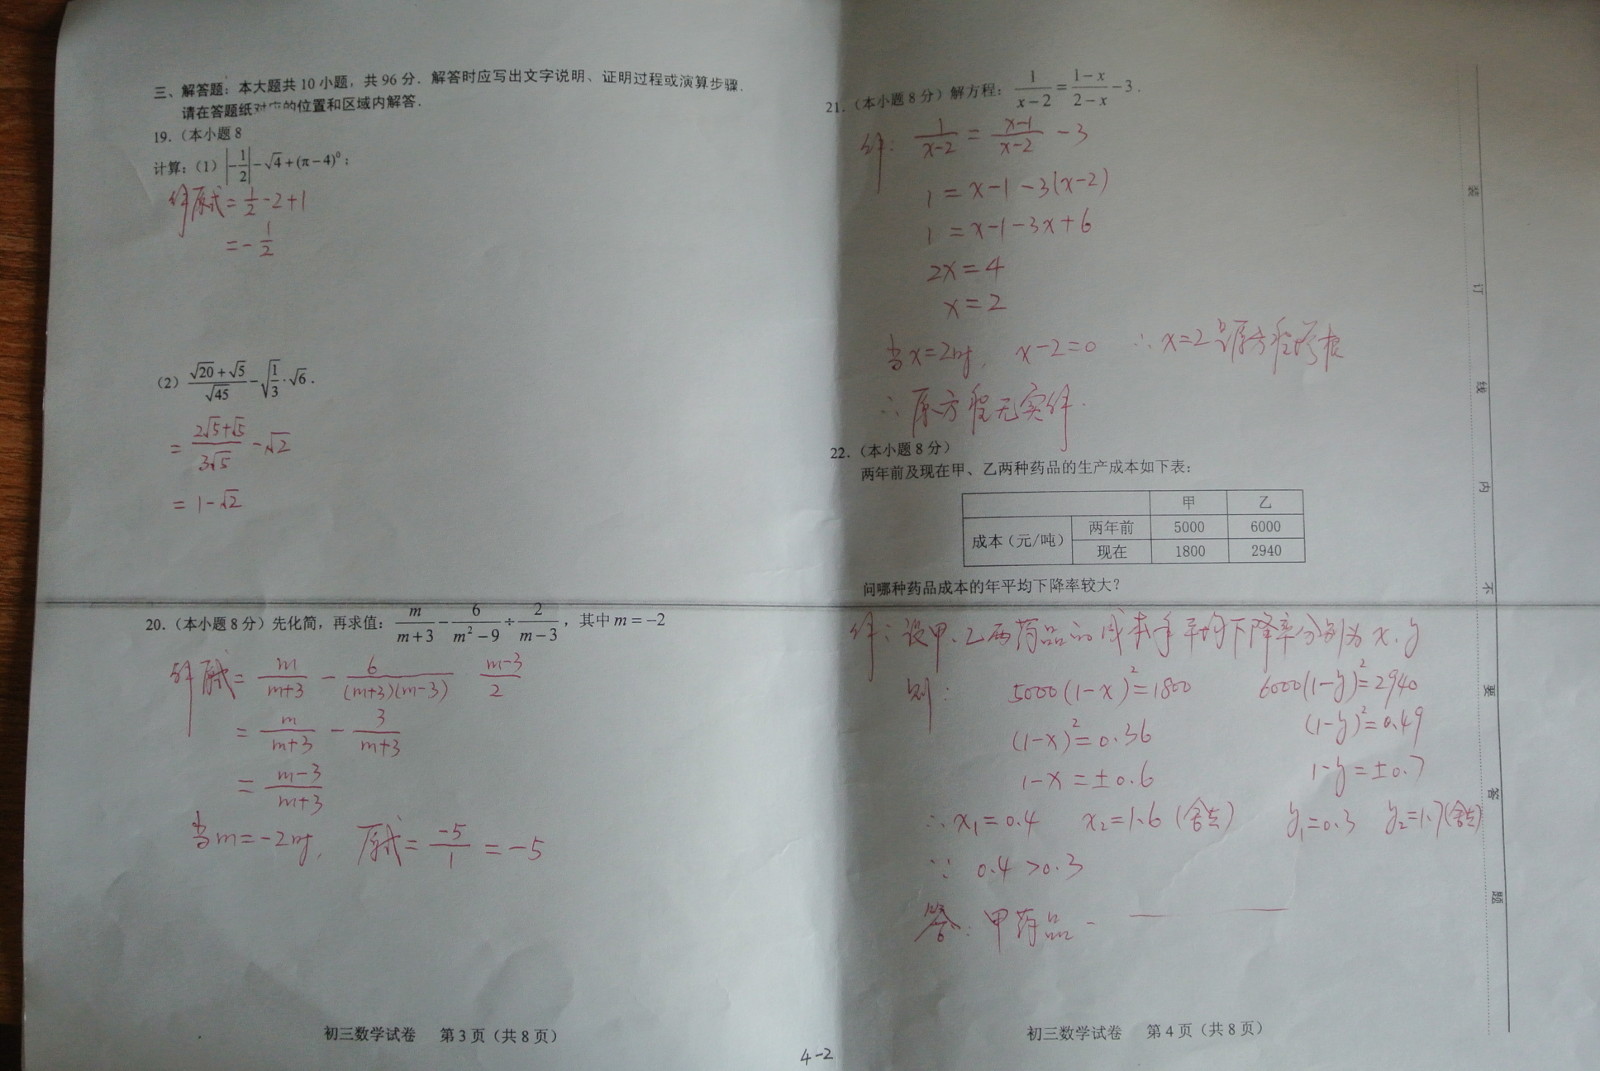 三、解答题：本大题共 10 小题，共 96 分．解答时应写出文字说明、证明过程或演算步骤．
请在答题纸对应的位置和区域内解答．
19．（本小题 8
计算：（1）|-1/2|-√4+(π-4)⁰；
解原式=1/2-2+1
=-1/2
（2）(√20+√5)/√45-√(1/3)·√6．
=(2√5+√5)/(3√5)-√2
=1-√2
20．（本小题 8 分）先化简，再求值：m/(m+3)-6/(m²-9)÷2/(m-3)，其中 m=-2
解原式=m/(m+3)-6/((m+3)(m-3)) (m-3)/2
=m/(m+3)-3/(m+3)
=(m-3)/(m+3)
当m=-2时，原式=-5/1=-5
初三数学试卷 第 3 页（共 8 页）
4-2
21．（本小题 8 分）解方程：1/(x-2)=(1-x)/(2-x)-3．
解：1/(x-2)=(x-1)/(x-2)-3
1=x-1-3(x-2)
1=x-1-3x+6
2x=4
x=2
当x=2时，x-2=0 ∴x=2是原方程增根
∴原方程无实解．
22．（本小题 8 分）
两年前及现在甲、乙两种药品的生产成本如下表：
甲 乙
成本（元/吨） 两年前 5000 6000
现在 1800 2940
问哪种药品成本的年平均下降率较大？
解：设甲、乙两药品的成本年平均下降率分别为x、y
则：5000(1-x)²=1800 6000(1-y)²=2940
(1-x)²=0.36 (1-y)²=0.49
1-x=±0.6 1-y=±0.7
∴x₁=0.4 x₂=1.6（舍去） y₁=0.3 y₂=1.7（舍去）
∵0.4>0.3
答：甲药品-
初三数学试卷 第 4 页（共 8 页）
装 订 线 内 不 要 答 题